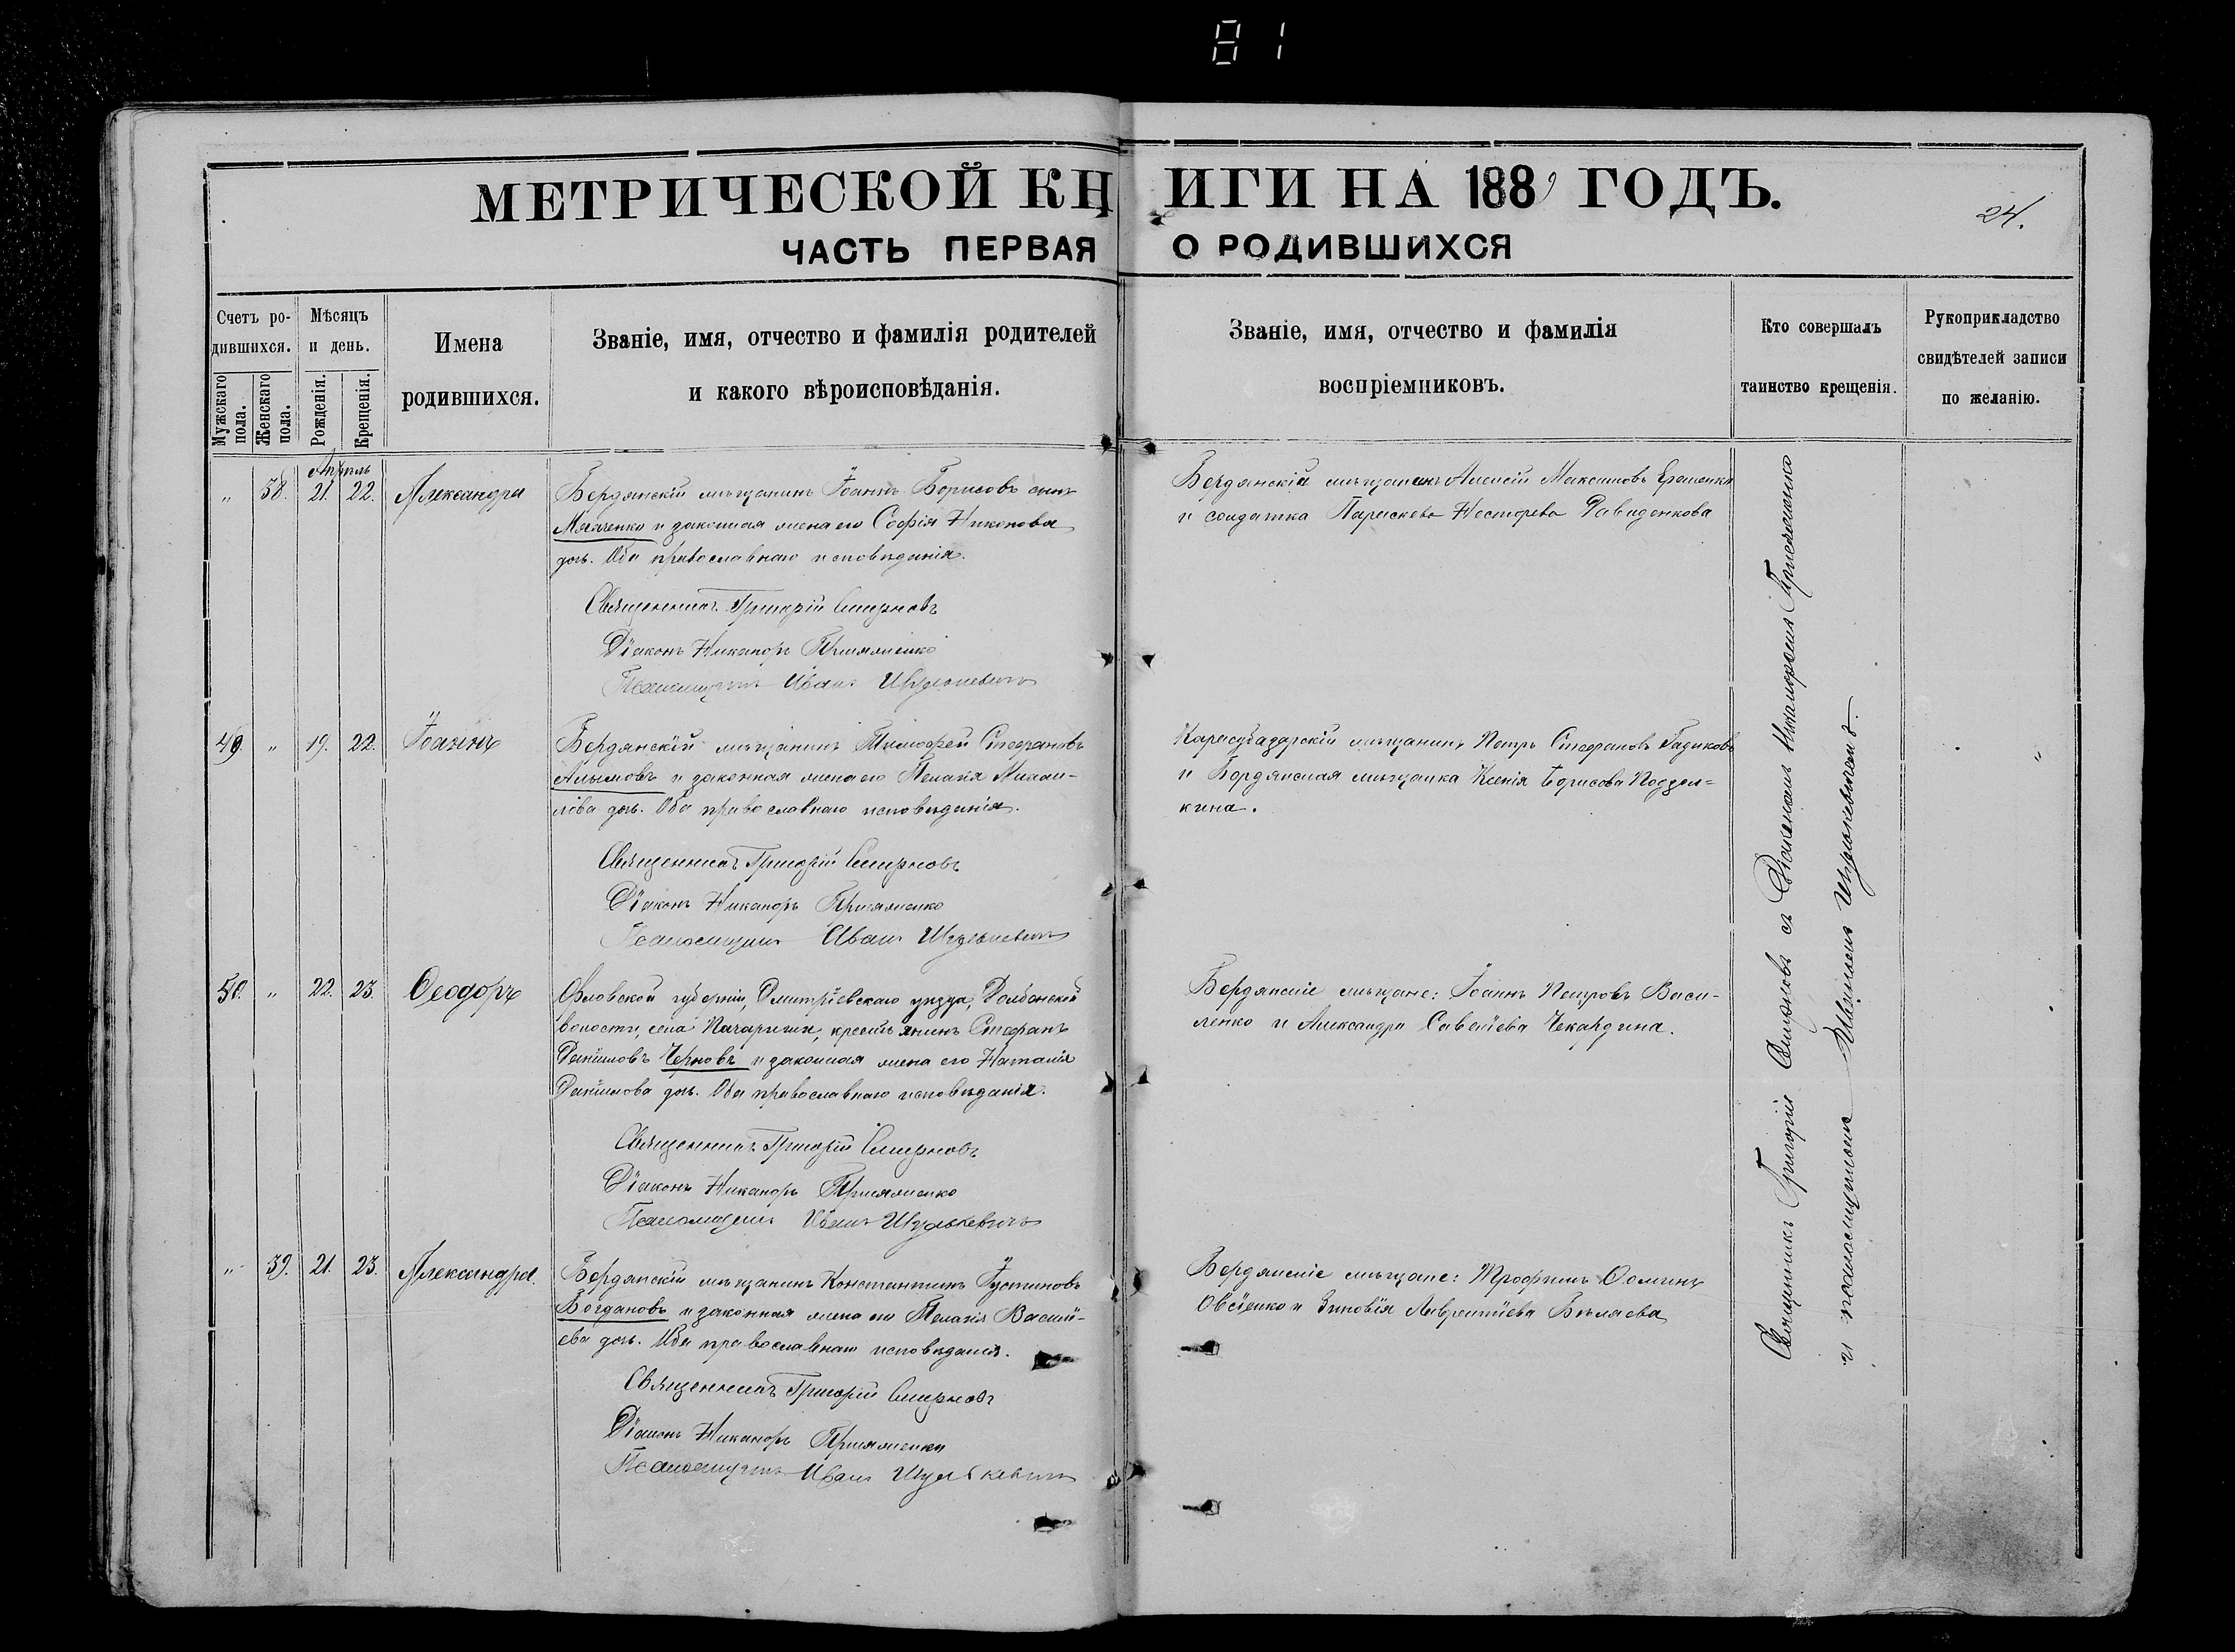 81
МЕТРИЧЕСКОЙ КНИГИ НА 1889 ГОДЪ.
24.
ЧАСТЬ ПЕРВАЯ О РОДИВШИХСЯ
Счетъ ро-
дившихся.
Мужскаго пола.
Женскаго пола.
Мѣсяцъ
и день.
Рожденія.
Крещенія.
Имена
родившихся.
Званіе, имя, отчество и фамилія родителей
и какого вѣроисповѣданія.
Званіе, имя, отчество и фамилія
воспріемниковъ.
Кто совершалъ
таинство крещенія.
Рукоприкладство
свидѣтелей записи
по желанію.
Апрѣль
" 38. 21. 22. Александра
Бердянскій мѣщанинъ Іоаннъ Борисовъ сынъ
и законная жена его Софія Никонова
дочь. Оба православнаго исповѣданія.
Священникъ Григорій Смирновъ
Діаконъ Никаноръ
Псаломщикъ Иванъ Шудькевичъ
Бердянскій мѣщанинъ Алексій Максимовъ Ерошенко
и солдатка Параскева Несторева Давиденкова
49. " 19. 22. Іоаннъ
Бердянскій мѣщанинъ Тимофей Стефановъ
Алымовъ и законная жена его Пелагія Михаи-
лова дочь. Оба православнаго исповѣданія.
Священникъ Григорій Смирновъ
Діаконъ Никаноръ
Псаломщикъ Иванъ Шудькевичъ
Карасубазарскій мѣщанинъ Петръ Стефановъ Гадиковъ
и Бердянская мѣщанка Ксенія Борисова
кина.
"
50. " 22. 23. Ѳеодоръ
Орловской губерніи, Дмитріевскаго уѣзда, Долбенской
волости, села крестьянинъ Стефанъ
Даниловъ Черновъ и законная жена его Наталія
Данилова дочь. Оба православнаго исповѣданія.
Священникъ Григорій Смирновъ
Діаконъ Никаноръ
Псаломщикъ Иванъ Шудькевичъ
Бердянскіе мѣщане: Іоаннъ Петровъ Васи-
ленко и Александра Савеліева Чекардина.
" 39. 21. 23. Александра.
Бердянскій мѣщанинъ Константинъ Іустиновъ
Богдановъ и законная жена его Пелагія Василі-
ева дочь. Оба православнаго исповѣданія.
Священникъ Григорій Смирновъ
Діаконъ Никаноръ
Псаломщикъ Иванъ Шудькевичъ
Бердянскіе мѣщане: Трофимъ Ѳоминъ
Овсіенко и Зиновія Лаврентіева Бѣляева
Священникъ Григорій Смирновъ съ Діакономъ Никаноромъ
и псаломщикомъ Иваномъ Шудькевичемъ.